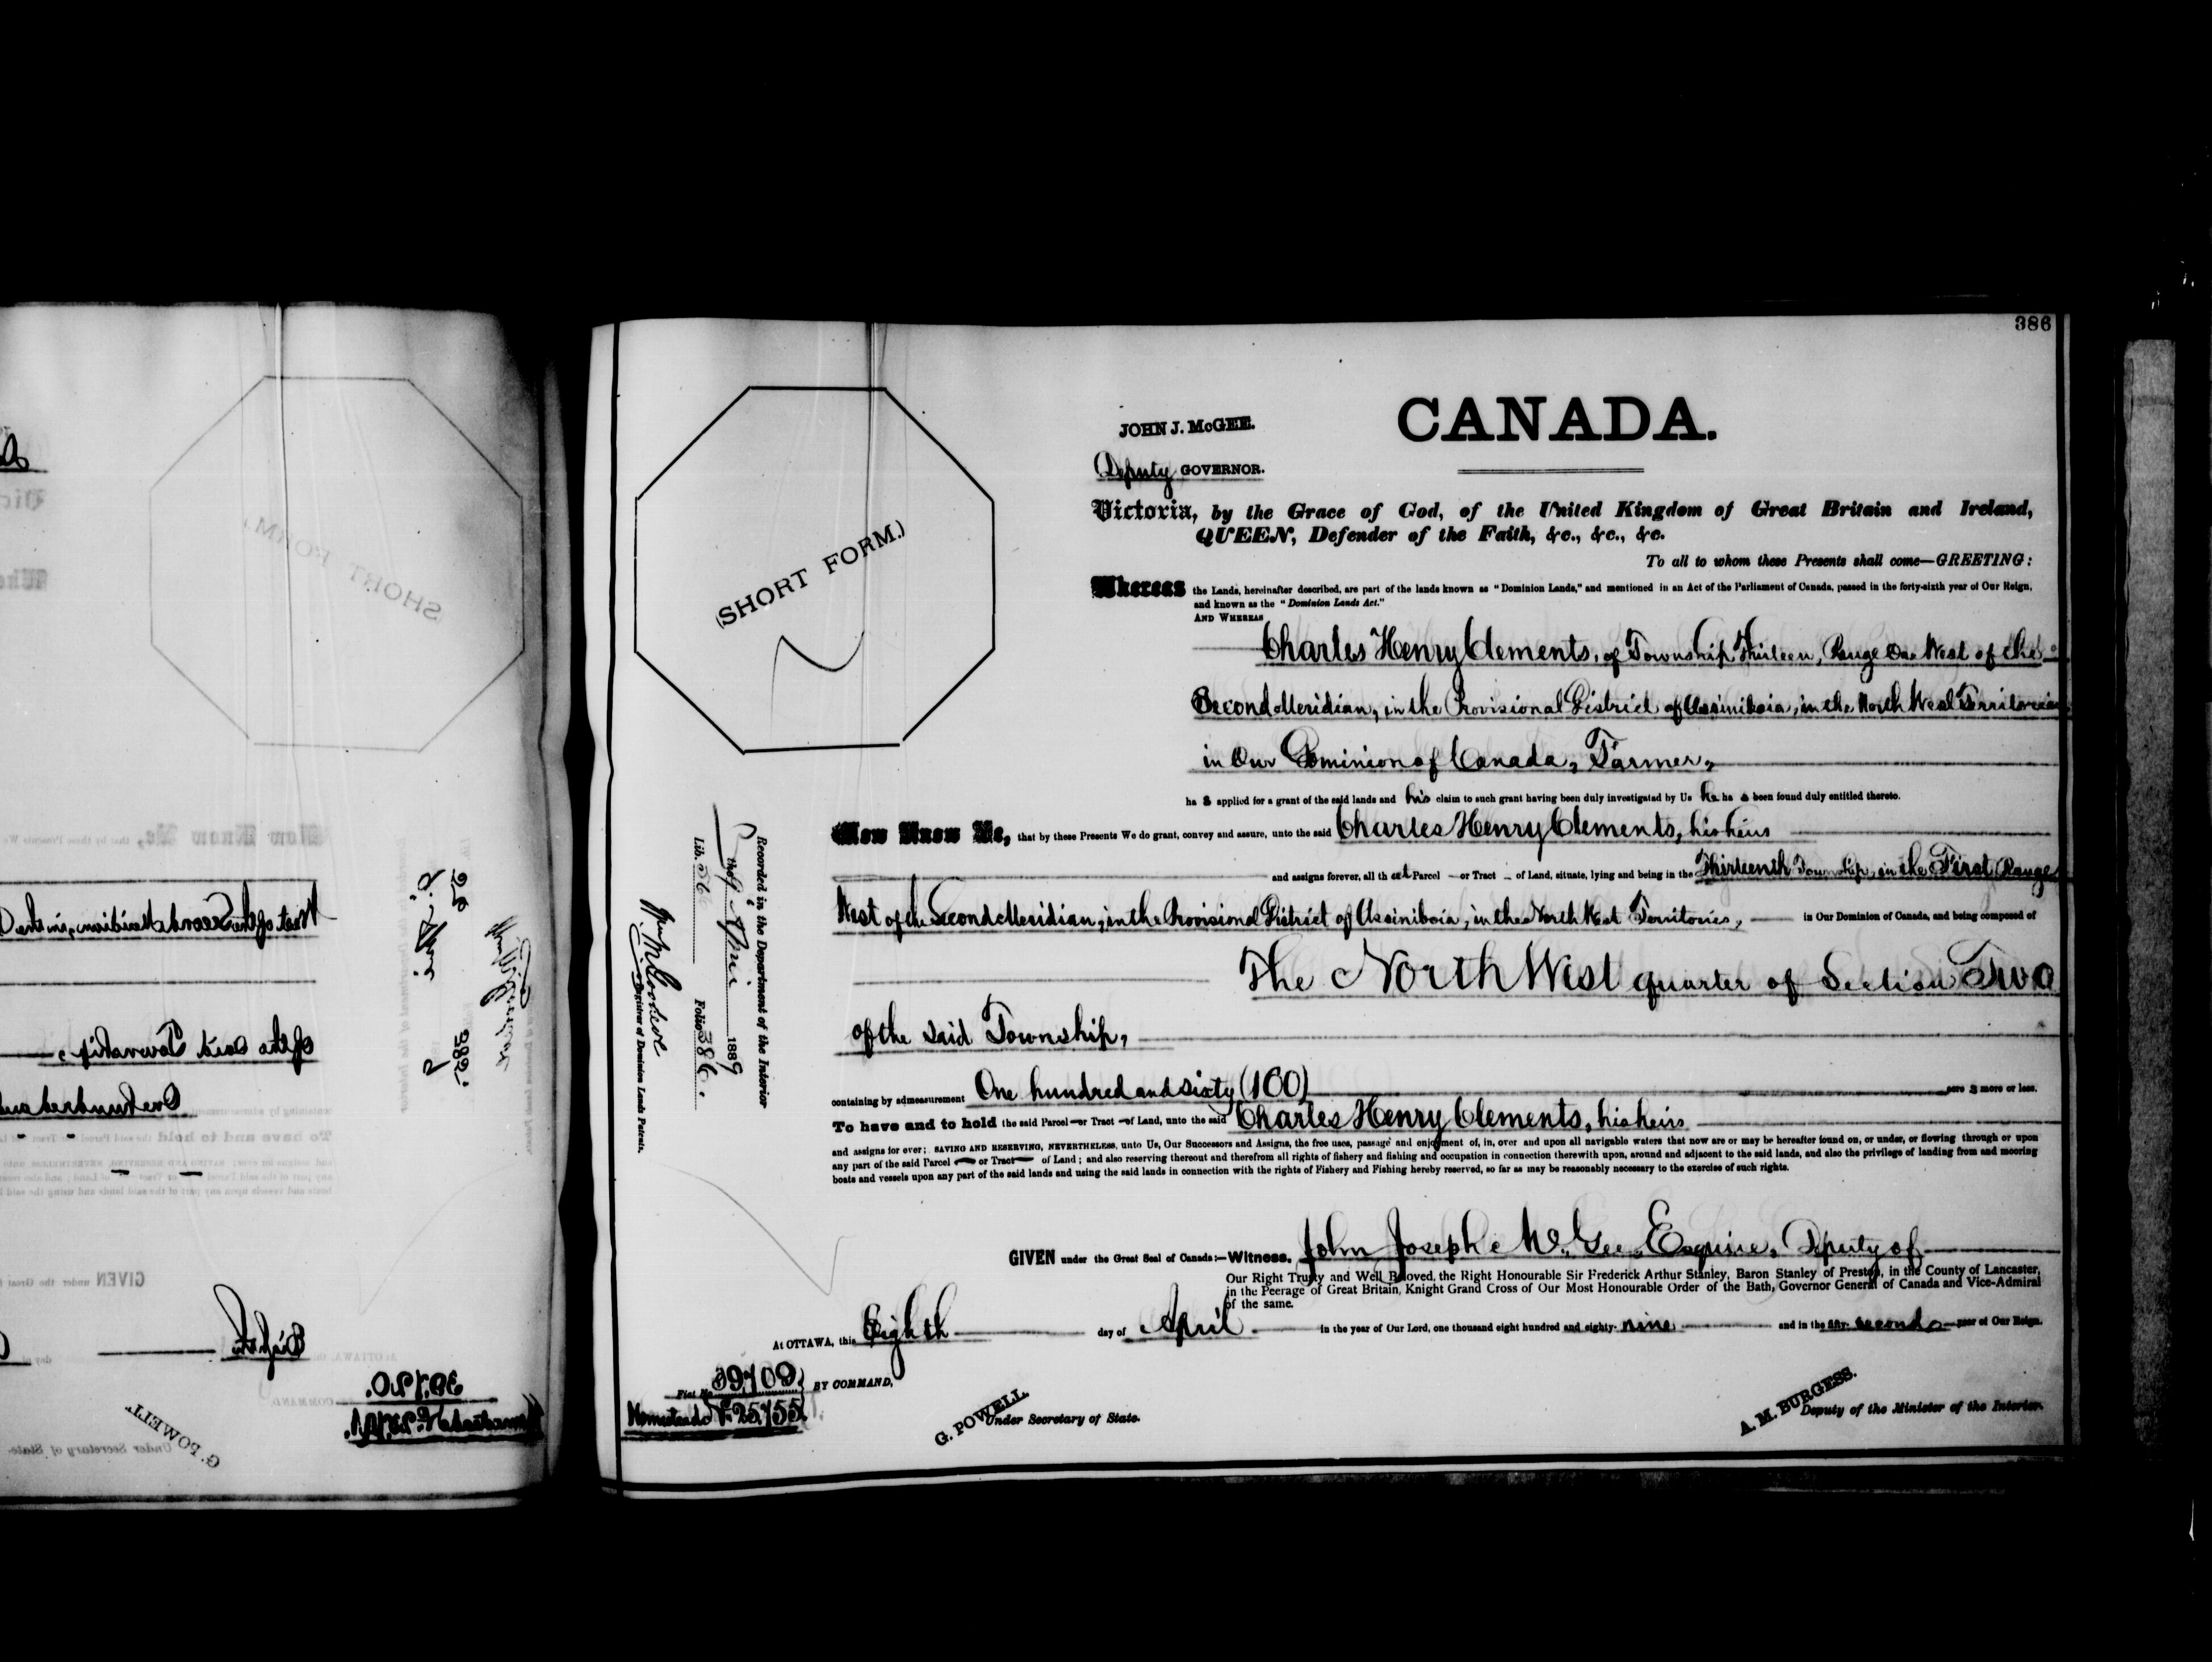 386
CANADA.
JOHN J. McGEE.
Deputy GOVERNOR.
Victoria, by the Grace of God, of the United Kingdom of Great Britain and Ireland,
QUEEN, Defender of the Faith, &c., &c., &c.
To all to whom these Presents shall come—GREETING:
Whereas the Lands, hereinafter described, are part of the lands known as "Dominion Lands," and mentioned in an Act of the Parliament of Canada, passed in the forty-sixth year of Our Reign,
and known as the "Dominion Lands Act."
AND WHEREAS
Charles Henry Clements, of Township Thirteen, Range One West of the
Second Meridian, in the Provisional District of Assiniboia, in the North West Territories
in Our Dominion of Canada, Farmer,
ha s applied for a grant of the said lands and his claim to such grant having been duly investigated by Us he ha s been found duly entitled thereto.
Now Know Ye, that by these Presents We do grant, convey and assure, unto the said Charles Henry Clements, his heirs
and assigns forever, all th at Parcel — or Tract — of Land, situate, lying and being in the Thirteenth Township, in the First Range
West of the Second Meridian, in the Provisional District of Assiniboia, in the North West Territories, in Our Dominion of Canada, and being composed of
The North West quarter of Section Two
of the said Township,
containing by admeasurement One hundred and sixty (160) acre s more or less.
To have and to hold the said Parcel — or Tract — of Land, unto the said Charles Henry Clements, his heirs
and assigns for ever; SAVING AND RESERVING, NEVERTHELESS, unto Us, Our Successors and Assigns, the free uses, passage and enjoyment of, in, over and upon all navigable waters that now are or may be hereafter found on, or under, or flowing through or upon
any part of the said Parcel — or Tract — of Land; and also reserving thereout and therefrom all rights of fishery and fishing and occupation in connection therewith upon, around and adjacent to the said lands, and also the privilege of landing from and mooring
boats and vessels upon any part of the said lands and using the said lands in connection with the rights of Fishery and Fishing hereby reserved, so far as may be reasonably necessary to the exercise of such rights.
GIVEN under the Great Seal of Canada:—Witness, John Joseph McGee, Esquire, Deputy of
Our Right Trusty and Well Beloved, the Right Honourable Sir Frederick Arthur Stanley, Baron Stanley of Preston, in the County of Lancaster,
in the Peerage of Great Britain, Knight Grand Cross of Our Most Honourable Order of the Bath, Governor General of Canada and Vice-Admiral
of the same.
At OTTAWA, this Eighth day of April in the year of Our Lord, one thousand eight hundred and eighty- nine and in the fifty- second year of Our Reign.
Fiat No. 39708 BY COMMAND,
Homesteads
G. POWELL.
Under Secretary of State.
A. M. BURGESS.
Deputy of the Minister of the Interior.
(SHORT FORM.)
Recorded in the Department of the Interior
this 9 April 1889
Lib. 56 Folio 386.
Registrar of Dominion Lands Patents.